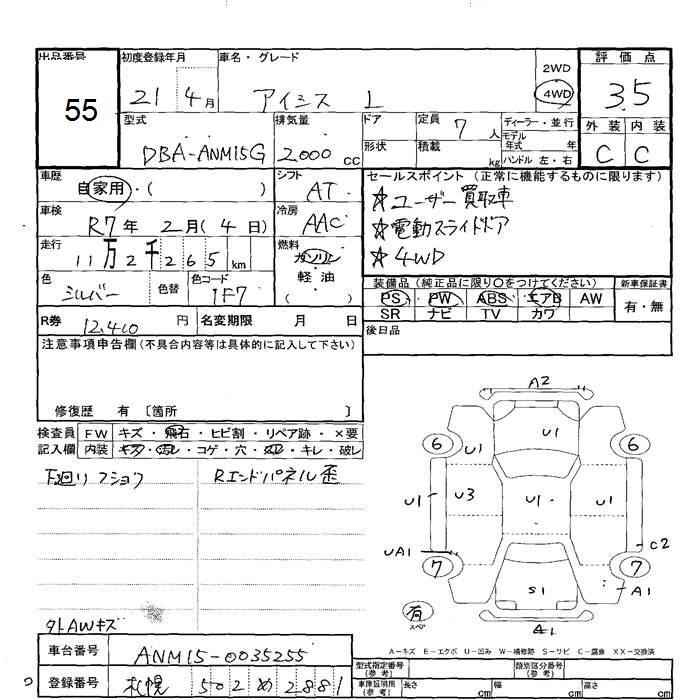 出品番号 初度登録年月 車名・グレード 評価点
55 21 4月 アイシス L 2WD 4WD 3.5
型式 排気量 ドア 定員 7人 ディーラー・並行 外装 内装
DBA-ANM15G 2000cc 形状 積載 kg モデル年式 年 C C
ハンドル 左・右
車歴 自家用・( ) シフト AT セールスポイント (正常に機能するものに限ります)
☆ユーザー買取車
車検 R7年 2月(4日) 冷房 AAC ☆電動スライドドア
走行 11万2千265km 燃料 ガソリン ☆4WD
軽・油
( )
色 シルバー 色替 色コード 1F7 装備品 (純正品に限り○をつけてください) 新車保証書
PS PW ABS エアB AW 有・無
SR ナビ TV カワ
R券 12,410円 名変期限 月 日 後日品
注意事項申告欄(不具合内容等は具体的に記入して下さい)
修復歴 有 〔箇所 〕
検査員 FW キズ・飛石・ヒビ割・リペア跡・×要
記入欄 内装 キズ・汚レ・コゲ・穴・・キレ・破レ
下廻リフショク Rエンドパネル歪
外AWキズ
A2
6 U1 U1 6
U1 U3 U1 U1
UA1 C2
7 7
S1 A1
有 スペア
A1
A−キズ E−エクボ U−凹み W−補修跡 S−サビ C−腐食 XX−交換済
車台番号 ANM15-0035255 型式指定番号(参考) 類別区分番号(参考)
登録番号 札幌 502 め 2881 車庫証明用(参考) 長さ cm 幅 cm 高さ cm